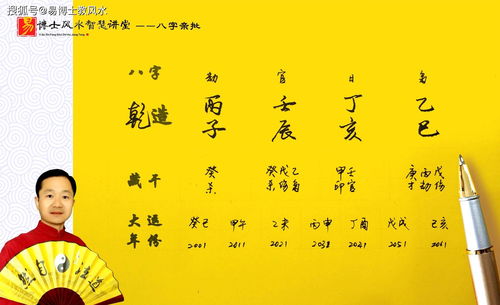 搜狐号@易博士教风水
易 博士风水智慧讲堂 ——八字亲批
八字 劫 官 日 枭
乾造 丙子 壬辰 丁亥 乙巳
藏干 癸 癸戊乙 甲壬 庚丙戊
杀 杀伤枭 印官 才劫伤
大运 癸巳 甲午 乙未 丙申 丁酉 戊戌 己亥
年份 2001 2011 2021 2031 2041 2051 2061